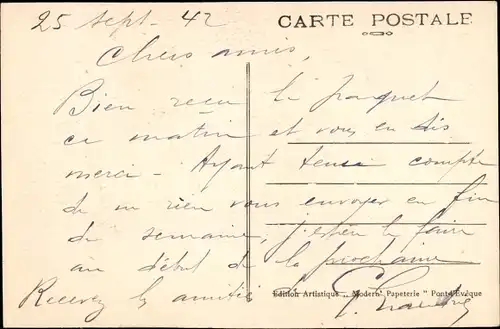 25 Sept - 42
CARTE POSTALE
Chers amis,
Bien reçu le paquet
ce matin et vous en dis
merci - Ayant tenu compte
de ne rien vous envoyer en fin
de semaine, j'espère le faire
au début de la prochaine
Recevez les amitiés de
Edition Artistique „ Modern' Papeterie " Pont-l'Evêque